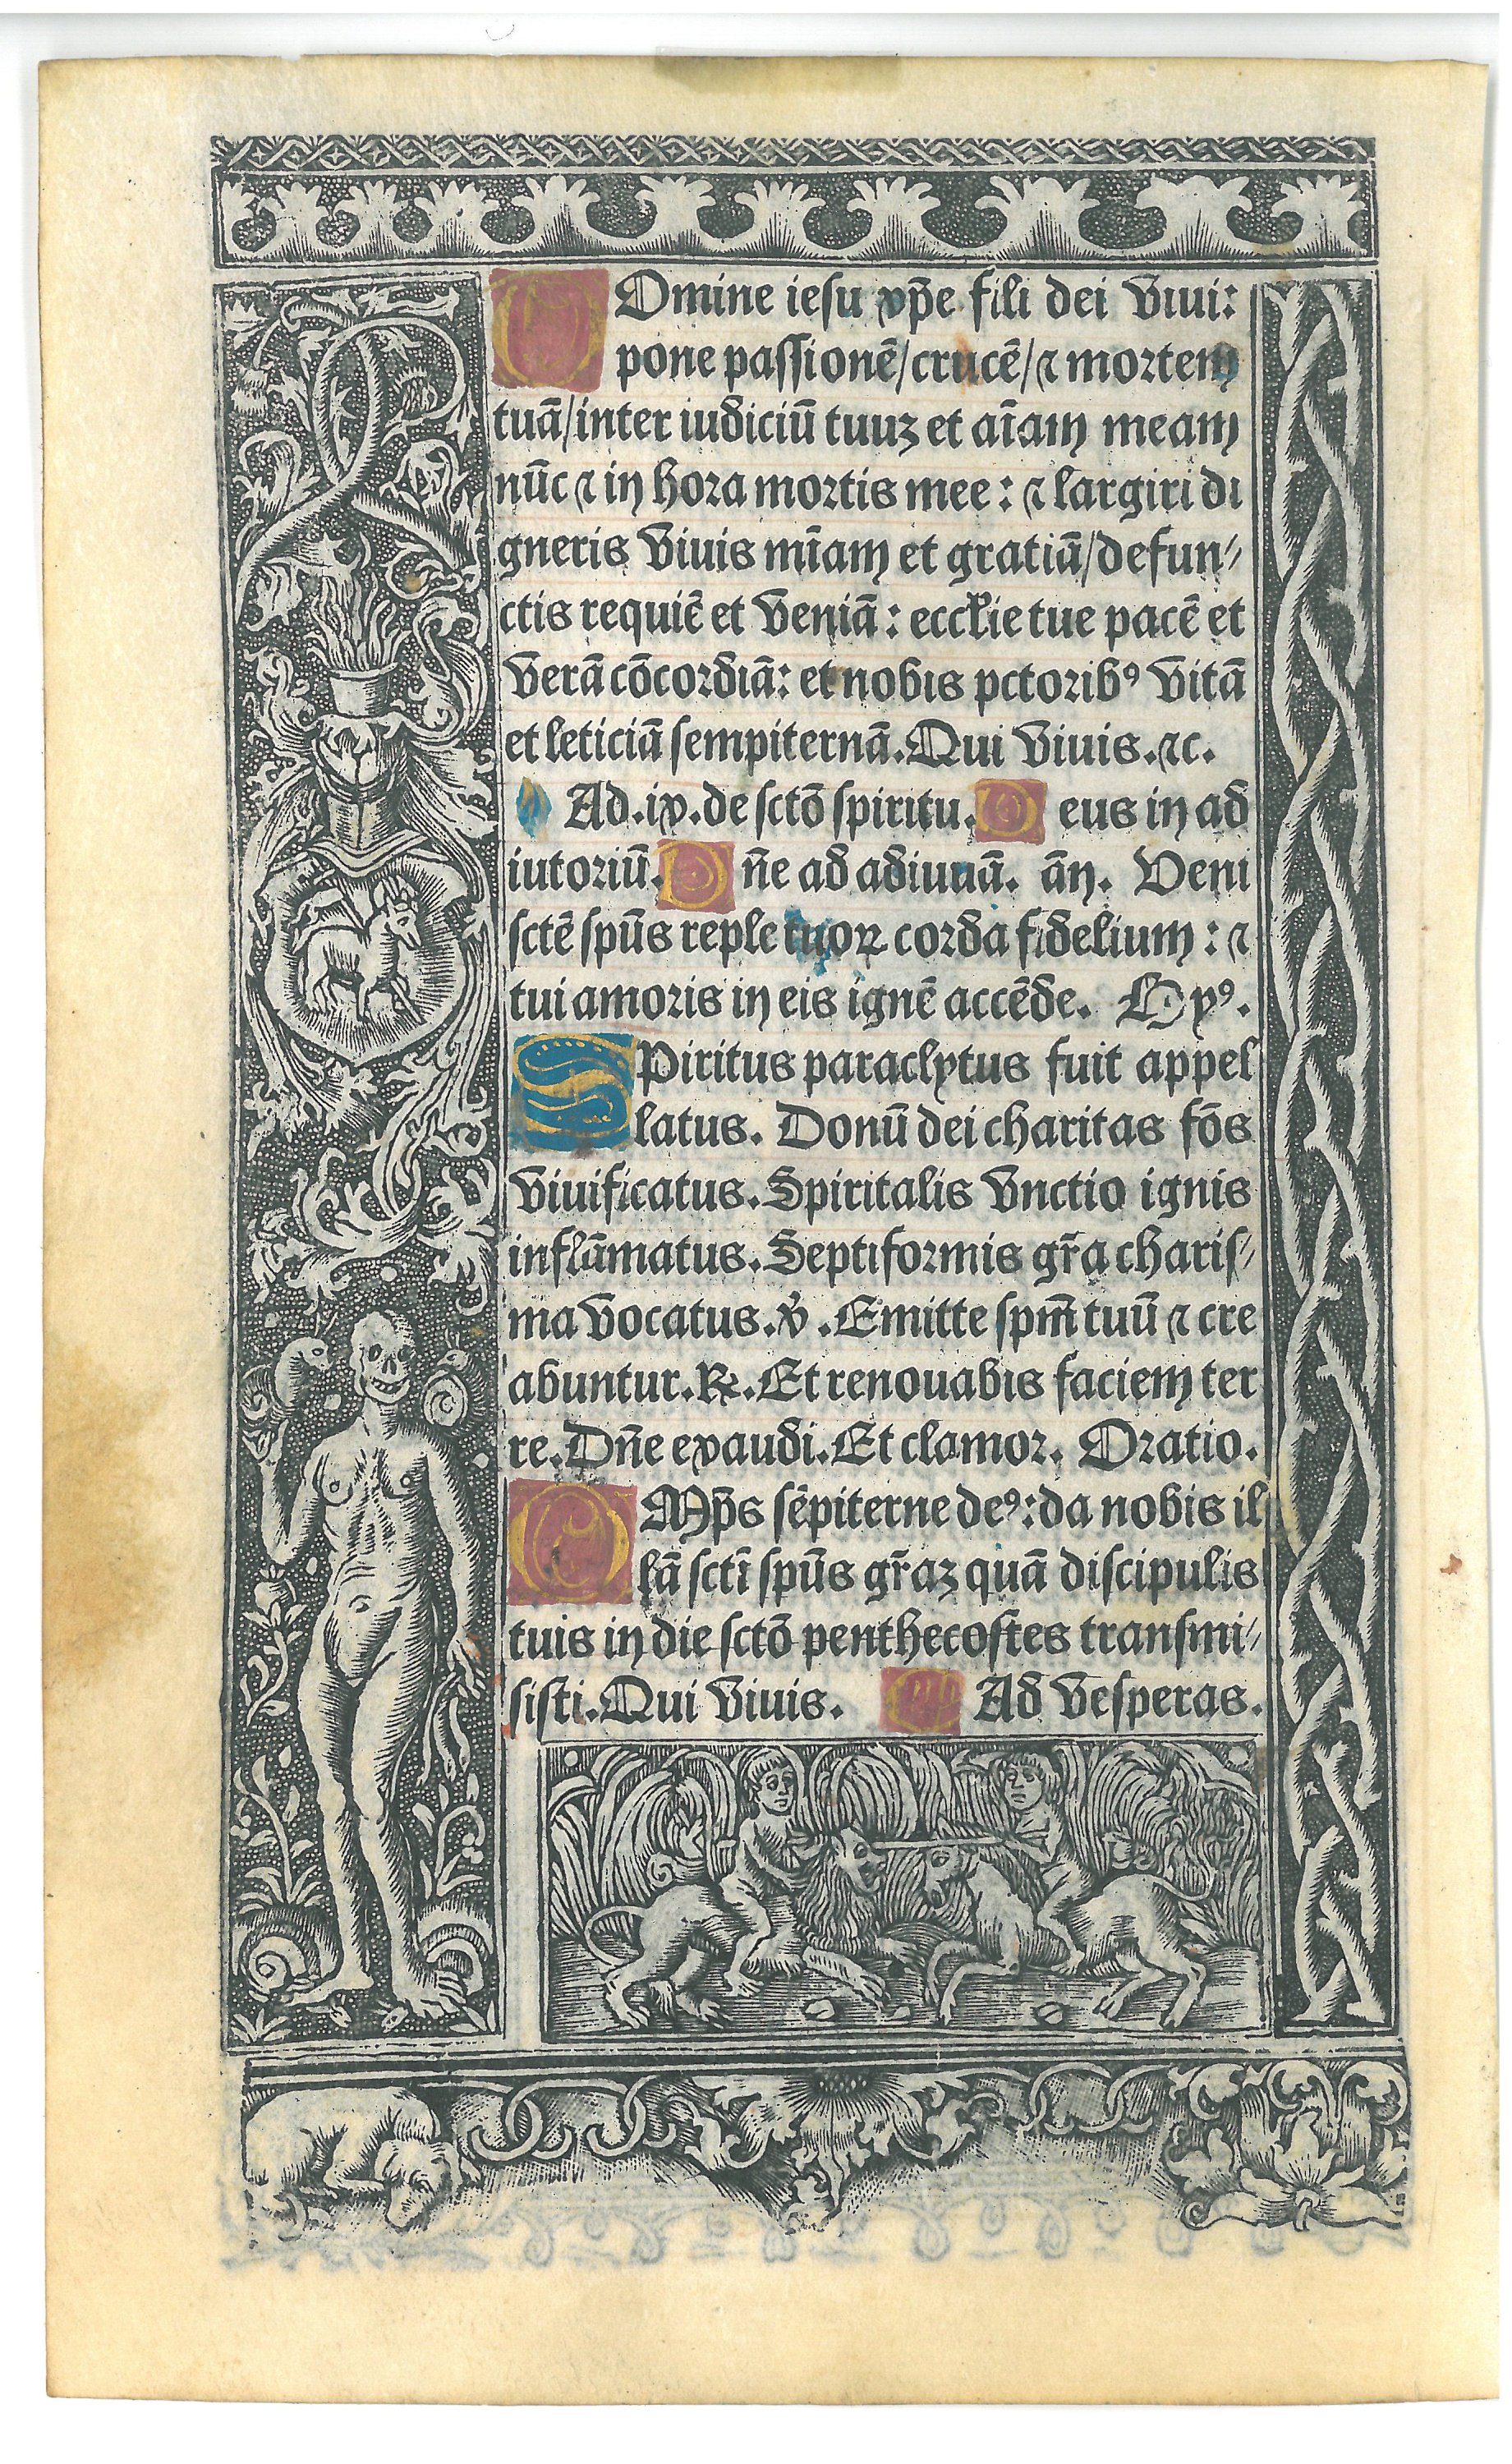 DOmine iesu xp̄e fili dei viui:
pone passionē/crucē/⁊ mortem
tuā/inter iudiciū tuuꝫ et aīam meam
nūc ⁊ in hora mortis mee: ⁊ largiri di
gneris viuis mīam et gratiā/defun⸗
ctis requiē et veniā: eccłie tue pacē et
verā cōcordiā: et nobis pctoribꝰ vitā
et leticiā sempiternā. Qui viuis. ⁊c.
Ad .ix. de sctō spiritu. Deus in ad
iutoriū. Dn̄e ad adiuuā. ān. Veni
sctē spūs reple tuoꝝ corda fidelium: ⁊
tui amoris in eis ignē accēde. Hyꝰ.
SPiritus paraclytus fuit appel
latus. Donū dei charitas fōs
viuificatus. Spiritalis vnctio ignis
inflāmatus. Septiformis gr̄a charis⸗
ma vocatus. ℣. Emitte spm̄ tuū ⁊ cre
abuntur. ℟. Et renouabis faciem ter
re. Dn̄e exaudi. Et clamor. Oratio.
OMp̄s sēpiterne deꝰ: da nobis il
lā sctī spūs gr̄aꝫ quā discipulis
tuis in die sctō penthecostes transmi⸗
sisti. Qui viuis. Ad vesperas.